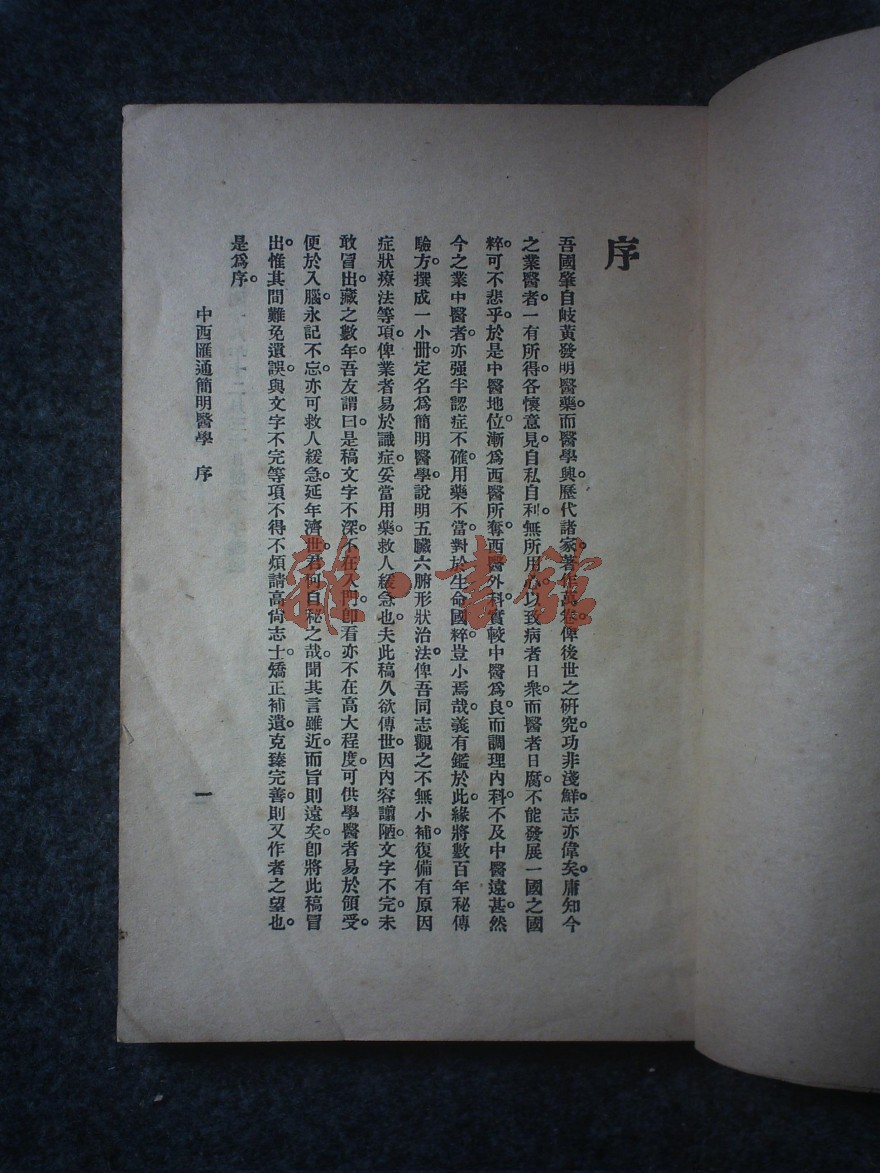 序
吾國肇自岐黃發明醫藥。而醫學興。歷代諸家著作萬卷。俾後世之研究。功非淺鮮。志亦偉矣。庸知今
之業醫者。一有所得。各懷意見。自私自利。無所用心。以致病者日衆。而醫者日腐。不能發展一國之國
粹。可不悲乎。於是中醫地位。漸爲西醫所奪。西醫外科。實較中醫爲良。而調理內科。不及中醫遠甚。然
今之業中醫者。亦强半認症不確。用藥不當。對於生命國粹。豈小焉哉。義有鑑於此。緣將數百年秘傳
驗方。撰成一小冊。定名爲簡明醫學。說明五臟六腑形狀治法。俾吾同志觀之。不無小補。復備有原因
症狀療法等項。俾業者易於識症。妥當用藥。救人緩急也。夫此稿久欲傳世。因內容譾陋。文字不完。未
敢冒出。藏之數年。吾友謂曰。是稿文字不深。不在入門。卽看亦不在高大程度。可供學醫者易於領受。
便於入腦。永記不忘。亦可救人緩急。延年濟世。君何自秘之哉。聞其言雖近。而旨則遠矣。卽將此稿冒
出。惟其間難免遺誤。與文字不完等項。不得不煩請高尙志士。矯正補遺。克臻完善。則又作者之望也。
是爲序。
中西匯通簡明醫學 序
一
雜·書館